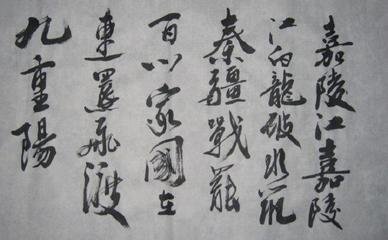 嘉陵江嘉陵
江白龍破
秦疆戰罷
百家國在
還飛渡
九重陽